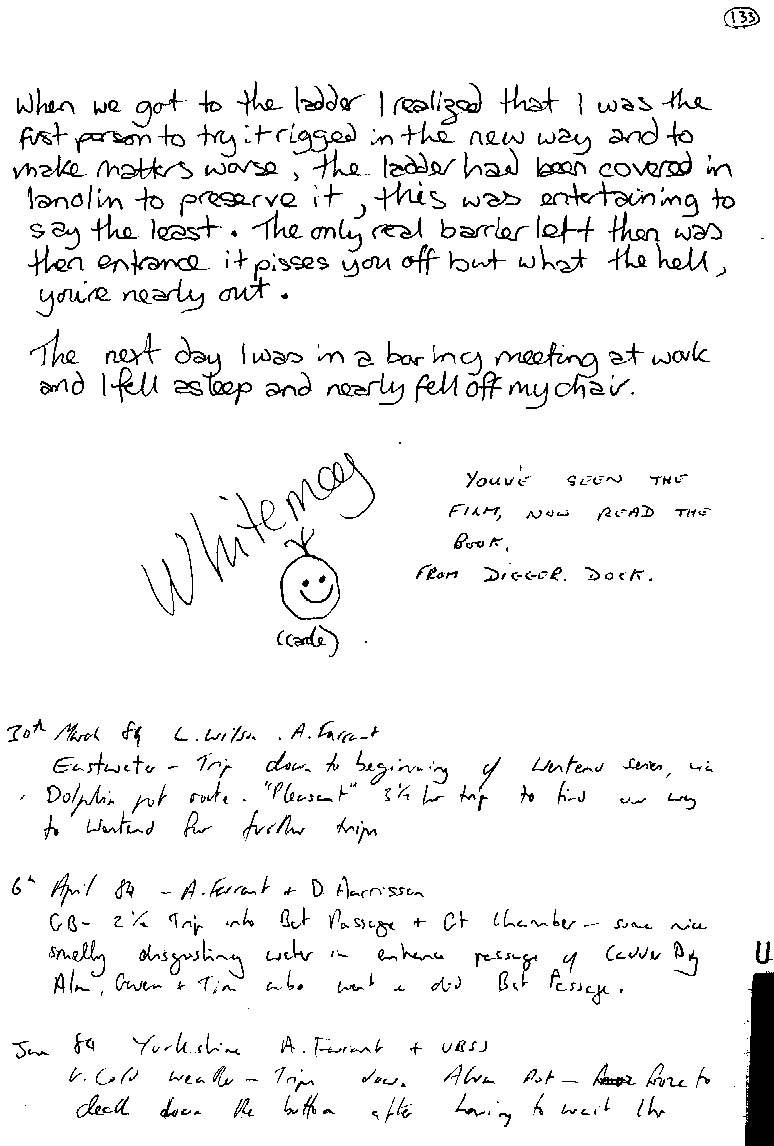 133
When we got to the ladder I realized that I was the
first person to try it rigged in the new way and to
make matters worse, the ladder had been covered in
lanolin to preserve it, this was entertaining to
say the least. The only real barrier left then was
then entrance it pisses you off but what the hell,
you're nearly out.
The next day I was in a boring meeting at work
and I fell asleep and nearly fell off my chair.
Whitemay
YOUV'E SEEN THE
FILM, NOW READ THE
BOOK.
FROM DIGGER. DOCK.
30th March 89 L. Wilson . A. Farrant
Eastwater - Trip down to beginning of Westend series, via
Dolphin pot route. "Pleasant" 3½ hr trip to find our way
to Westend for further trips
6th April 89 - A. Farrant + D. Harrisson
GB - 2½ Trip into Bat Passage + Gt Chamber - some nice
smelly disgusting water in entrance passage of Ladder Dig
Alan, Gwen + Tim also went & did Bat Passage.
Jan 89 Yorkshire A. Farrant + UBSS
V. Cold weather - Trip down Alum Pot - froze to
death down the bottom after having to wait 1hr
U